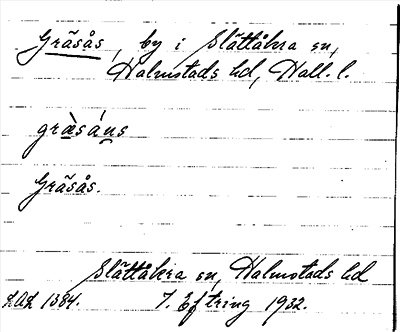 Gräsås, by i Slättåkra sn,
Halmstads hd, Hall. l.
græ̀sáns
Gräsås.
Slättåkra sn, Halmstads hd
LAL 1384. J. Ejtring 1932.